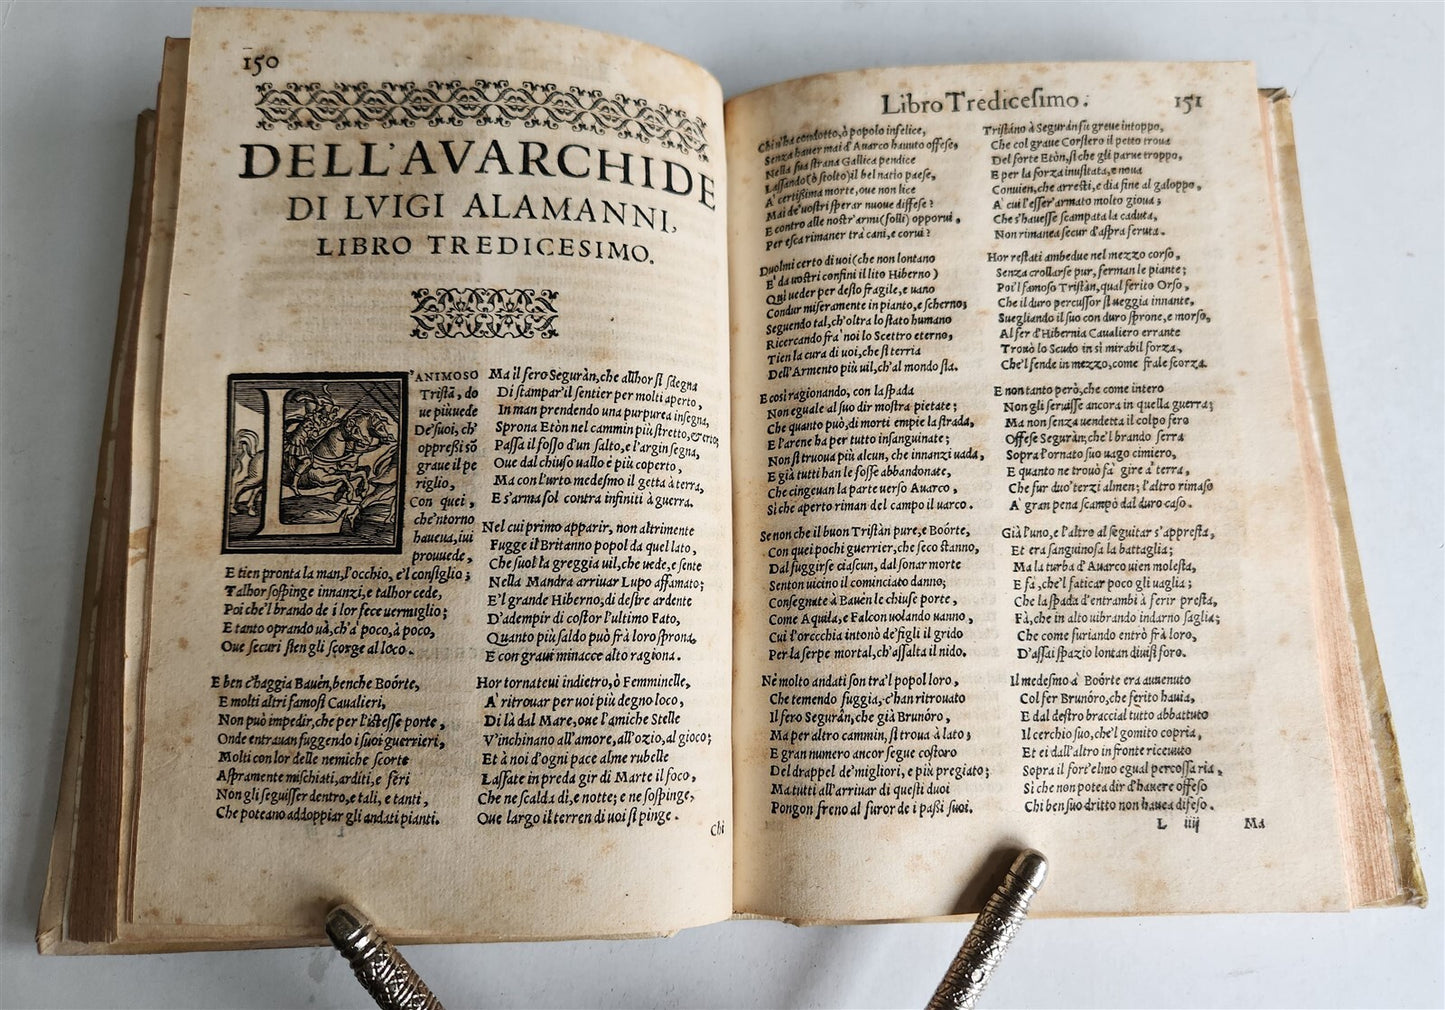 150
DELL'AVARCHIDE
DI LVIGI ALAMANNI,
LIBRO TREDICESIMO.
L'ANIMOSO
Tristã, do
ue più uede
De' suoi, ch'
oppressi sõ
graue il pe
riglio,
Con quei,
che'ntorno
haueua, iui
prouuede,
E tien pronta la man, l'occhio, e'l consiglio;
Talhor sospinge innanzi, e talhor cede,
Poi che'l brando de i lor fece uermiglio;
E tanto oprando uà, ch'à poco, à poco,
Oue securi sien gli scorge al loco.
E ben c'haggia Bauèn, benche Boórte,
E molti altri famosi Caualieri,
Non può impedir, che per l'istesse porte,
Onde entrauan fuggendo i suoi guerrieri,
Molti con lor delle nemiche scorte
Aspramente mischiati, arditi, e feri
Non gli seguisser dentro, e tali, e tanti,
Che poteano addoppiar gli andati pianti.
Ma il fero Seguràn, che allhor si sdegna
Di stampar'il sentier per molti aperto,
In man prendendo una purpurea insegna,
Sprona Etòn nel cammin più stretto, & erto;
Passa il fosso d'un salto, e l'argin segna,
Oue dal chiuso uallo è più coperto,
Ma con l'urto medesmo il getta à terra,
E s'arma sol contra infiniti à guerra.
Nel cui primo apparir, non altrimente
Fugge il Britanno popol da quel lato,
Che suol la greggia uil, che uede, e sente
Nella Mandra arriuar Lupo affamato;
E'l grande Hiberno, di desire ardente
D'adempir di costor l'ultimo Fato,
Quanto più saldo può frà loro sprona,
E con graui minacce alto ragiona.
Hor tornateui indietro, ò Femminelle,
A' ritrouar per uoi più degno loco,
Di là dal Mare, oue l'amiche Stelle
V'inchinano all'amore, all'ozio, al gioco;
Et à noi d'ogni pace alme rubelle
Lassate in preda gir di Marte il foco,
Che ne scalda dì, e notte; e ne sospinge,
Oue largo il terren di uoi si pinge.
Chi
Libro Tredicesimo.
151
Chi u'ha condotto, ò popolo infelice,
Senza hauer mai d'Auarco hauuto offese,
Nella sua strana Gallica pendice
Lassando (ò stolto) il bel natio paese,
A' certissima morte, oue non lice
Mai de' uostri sperar nuoue diffese?
E contro alle nostr'armi (folli) opporui,
Per esca rimaner trà cani, e corui?
Duolmi certo di uoi (che non lontano
E' da uostri confini il lito Hiberno)
Qui ueder per desio fragile, e uano
Condur miseramente in pianto, e scherno;
Seguendo tal, ch'oltra lo stato humano
Ricercando frà noi lo Scettro eterno,
Tien la cura di uoi, che si terria
Dell'Armento più uil, ch'al mondo sia.
E così ragionando, con la spada
Non eguale al suo dir mostra pietate;
Che quanto può, di morti empie la strada,
E l'arene ha per tutto insanguinate;
Non si truoua più alcun, che innanzi uada,
E già tutti han le fosse abbandonate,
Che cingeuan la parte uerso Auarco,
Sì che aperto riman del campo il uarco.
Se non che il buon Tristàn pure, e Boórte,
Con quei pochi guerrier, che seco stanno,
Dal fuggirse ciascun, dal sonar morte
Senton uicino il cominciato danno;
Consegnate à Bauèn le chiuse porte,
Come Aquila, e Falcon uolando uanno,
Cui l'orecchia intonò de' figli il grido
Per la serpe mortal, ch'assalta il nido.
Nè molto andati son tra'l popol loro,
Che temendo fuggia, c'han ritrouato
Il fero Seguràn, che già Brunóro,
Ma per altro cammin, si troua à lato;
E gran numero ancor segue costoro
Del drappel de' migliori, e più pregiato;
Ma tutti all'arriuar di questi duoi
Pongon freno al furor de i passi suoi.
Tristàno à Seguràn fù greue intoppo,
Che col graue Corsiero il petto troua
Del forte Etòn, sì che gli parue troppo,
E per la forza inusitata, e noua
Conuien, che arresti, e dia fine al galoppo,
A' cui l'esser'armato molto gioua;
Che s'hauesse scampata la caduta,
Non rimanea secur d'aspra feruta.
Hor restati ambedue nel mezzo corso,
Senza crollarse pur, ferman le piante;
Poi'l famoso Tristàn, qual ferito Orso,
Che il duro percussor si ueggia innante,
Suegliando il suo con duro sprone, e morso,
Al fer d'Hibernia Caualiero errante
Trouò lo Scudo in sì mirabil forza,
Che'l fende in mezzo, come frale scorza.
E non tanto però, che come intero
Non gli seruisse ancora in quella guerra;
Ma non senza uendetta il colpo fero
Offese Seguràn; che'l brando serra
Sopra l'ornato suo uago cimiero,
E quanto ne trouò fà gire à terra,
Che fur duo' terzi almen; l'altro rimaso
A' gran pena scampò dal duro caso.
Già l'uno, e l'altro al seguitar s'appresta,
Et era sanguinosa la battaglia;
Ma la turba d'Auarco uien molesta,
E fà, che'l faticar poco gli uaglia;
Che la spada d'entrambi à ferir presta,
Fà, che in alto uibrando indarno saglia;
Che come furiando entrò frà loro,
D'assai spazio lontan diuisi foro.
Il medesmo à Boórte era auuenuto
Col fer Brunóro, che ferito hauia,
E dal destro braccial tutto abbattuto
Il cerchio suo, che'l gomito copria,
Et ei dall'altro in fronte riceuuto
Sopra il fort'elmo egual percossa ria,
Sì che non potea dir d'hauere offeso
Chi ben suo dritto non hauea difeso.
L iiij
Ma